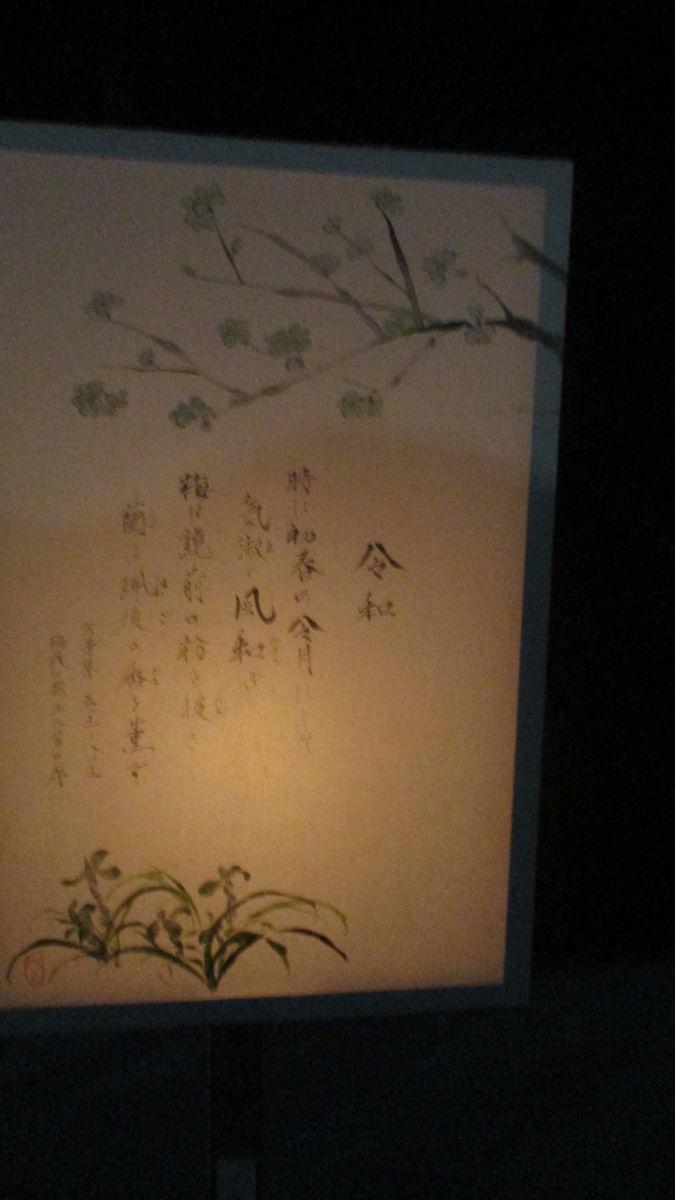 令和
時に初春の令月にして
気淑く風和ぎ
梅は鏡前の粉を披き
蘭は珮後の香を薫ず
梅花の歌三十二首の序